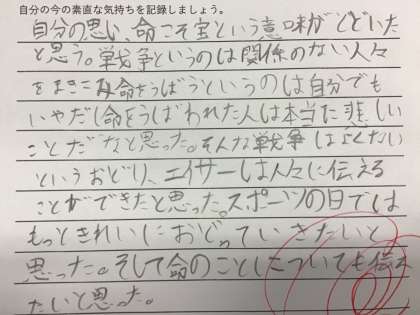 自分の今の素直な気持ちを記録しましょう。
自分の思い、命こそ宝という意味がとどいた
と思う。戦争というのは関係のない人々
をまきこみ命をうばうというのは自分でも
いやだし命をうばわれた人は本当に悲しい
ことだなと思った。そんな戦争はよくない
というおどり、エイサーは人々に伝える
ことができたと思った。スポーツの日では
もっときれいにおどっていきたいと
思った。そして命のことについても伝え
たいと思った。